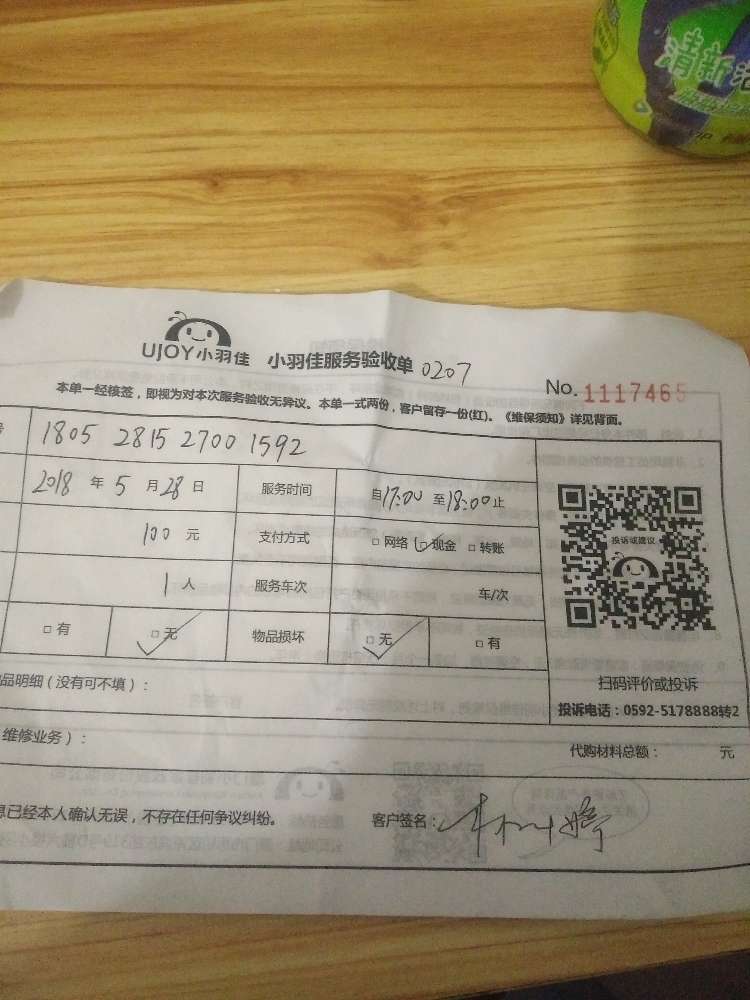 清新洁
UJOY小羽佳 小羽佳服务验收单 0207
No. 1117465
本单一经核签，即视为对本次服务验收无异议。本单一式两份，客户留存一份(红)。《维保须知》详见背面。
号 1805 2815 2700 1592
2018 年 5 月 28 日 服务时间 自17:00 至18:00止
100 元 支付方式 □网络 □现金 □转账
投诉或建议
1 人 服务车次 车/次
□有 □无 物品损坏 □无 □有
品明细（没有可不填）：
扫码评价或投诉
投诉电话：0592-5178888转2
维修业务）：
代购材料总额： 元
息已经本人确认无误，不存在任何争议纠纷。 客户签名：